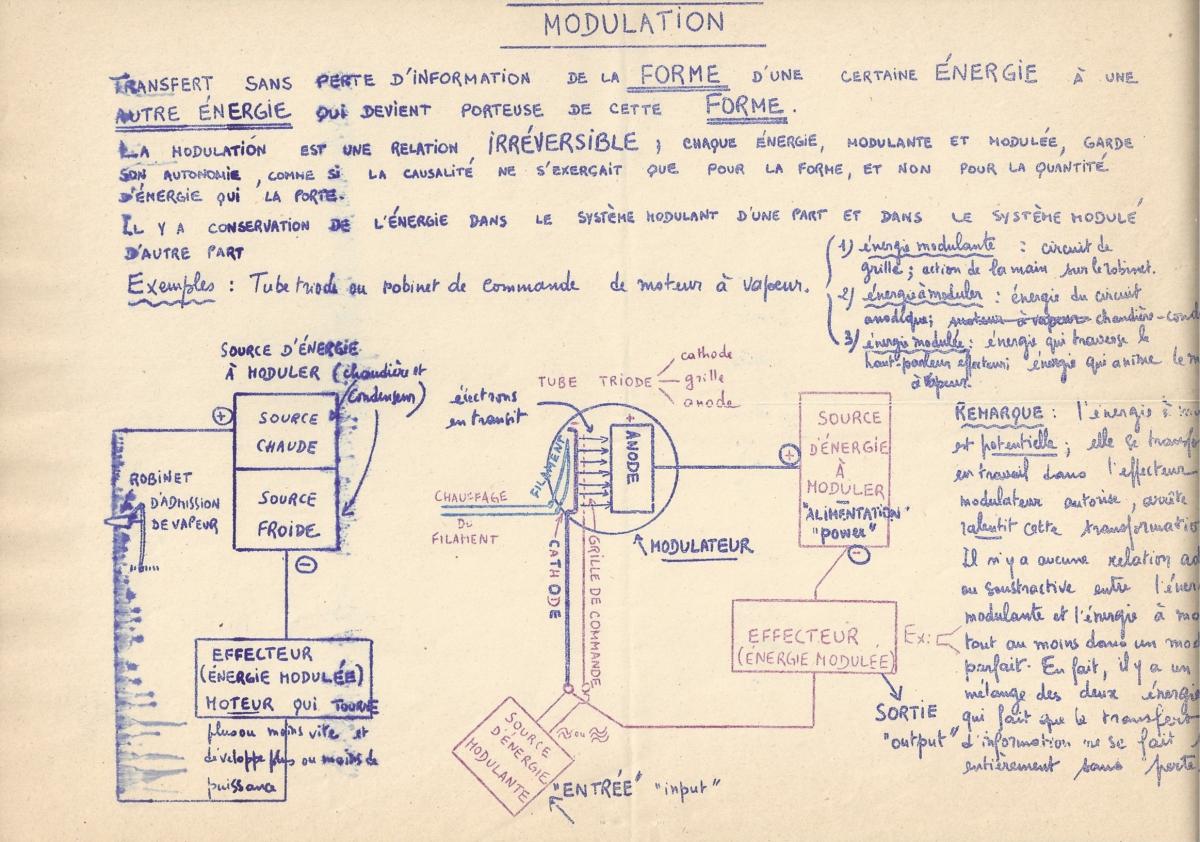 MODULATION
TRANSFERT SANS PERTE D'INFORMATION DE LA FORME D'UNE CERTAINE ÉNERGIE À UNE
AUTRE ÉNERGIE QUI DEVIENT PORTEUSE DE CETTE FORME.
LA MODULATION EST UNE RELATION IRRÉVERSIBLE ; CHAQUE ÉNERGIE, MODULANTE ET MODULÉE, GARDE
SON AUTONOMIE, COMME SI LA CAUSALITÉ NE S'EXERÇAIT QUE POUR LA FORME, ET NON POUR LA QUANTITÉ
D'ÉNERGIE QUI LA PORTE.
IL Y A CONSERVATION DE L'ÉNERGIE DANS LE SYSTÈME MODULANT D'UNE PART ET DANS LE SYSTÈME MODULÉ
D'AUTRE PART
Exemples : Tube triode ou robinet de commande de moteur à vapeur.
1) énergie modulante : circuit de
grille ; action de la main sur le robinet.
2) énergie à moduler : énergie du circuit
anodique; moteur à vapeur chaudière-cond
3) énergie modulée : énergie qui traverse le
haut-parleur effecteur; énergie qui anime le m
à vapeur.
SOURCE D'ÉNERGIE
À MODULER (chaudière et
condenseur)
+
SOURCE
CHAUDE
SOURCE
FROIDE
−
ROBINET
D'ADMISSION
DE VAPEUR
EFFECTEUR
(ÉNERGIE MODULÉE)
MOTEUR QUI TOURNE
plus ou moins vite et
développe plus ou moins de
puissance
TUBE TRIODE
cathode
grille
anode
électrons
en transit
FILAMENT
+
ANODE
CHAUFFAGE
DU
FILAMENT
CATHODE
GRILLE DE COMMANDE
MODULATEUR
+
SOURCE
D'ÉNERGIE
À
MODULER
"ALIMENTATION"
"power"
−
EFFECTEUR
(ÉNERGIE MODULÉE)
Ex:
SORTIE
"output"
ou
SOURCE
D'ÉNERGIE
MODULANTE
"ENTRÉE" "input"
REMARQUE : l'énergie à mo
est potentielle ; elle se transfo
en travail dans l'effecteur
modulateur autorise, arrête
ralentit cette transformatio
Il n'y a aucune relation ad
ou soustractive entre l'éner
modulante et l'énergie à mo
tout au moins dans un mod
parfait. En fait, il y a un
mélange des deux énergie
qui fait que le transfert
d'information ne se fait
entièrement sans perte